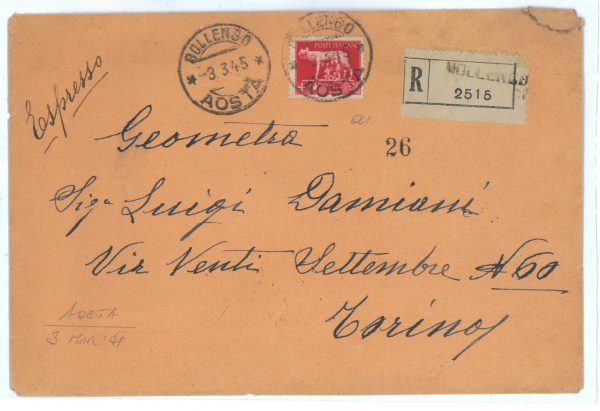 Espresso
BOLLENGO
* -3.3.45 *
AOSTA
POSTE ITALIANE
BOLLENGO
AOSTA
R
BOLLENGO
2515
26
Geometra
Sig. Luigi Damiani
Via Venti Settembre N 60
Torino
AOSTA
3 MAR